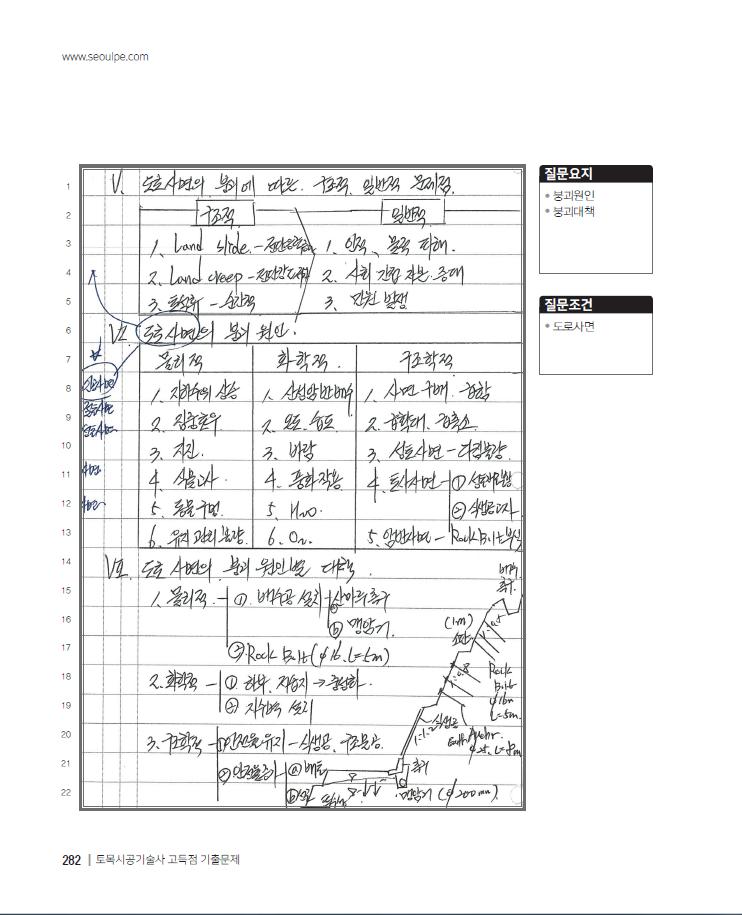 www.seoulpe.com
질문요지
• 붕괴원인
• 붕괴대책
질문조건
• 도로사면
1 V. 도로사면의 붕괴에 따른 구조적, 일반적 문제점.
2 구조적 일반적
3 1. Land slide - 1. 인적, 물적 피해.
4 2. Land creep - 2. 사회 간접 비용 증대
5 3. - 순간적 3. 민원 발생
6 VI. 도로사면의 붕괴 원인.
7 물리적 화학적 구조학적
8 1. 지하수위 상승 1. 산성암반배수 1. 사면 구배.
9 2. 집중호우 2. 온도, 습도. 2.
10 3. 지진 3. 바람 3. 성토사면 - 다짐불량.
11 4. 식물고사. 4. 풍화작용 4. 토사사면 - ①
12 5. 동물구멍. 5. H₂O. ② 식생공고사
13 6. 유지관리불량. 6. O₂. 5. 암반사면 - Rock Bolt 부식
14 VII. 도로사면의 붕괴 원인별 대책.
15 1. 물리적 - ① 배수공 설치 ⓐ 산마루측구
16 ⓑ 맹암거.
17 ② Rock Bolt (φ16, L=5m)
18 2. 화학적 - ① → 중성화.
19 ②
20 3. 구조학적 - ① 안전율유지 - 식생공, 구조물공.
21 ② 안전율증가 ⓐ 배토
22 ⓑ
측구.
(1m)
소단
1:0.5
1:0.8
1:1.2
Rock
Bolt
φ16m
L=5m.
식생공
Earth Anchor.
L=8m
측구
맹암거 (φ200mm)
282 | 토목시공기술사 고득점 기출문제